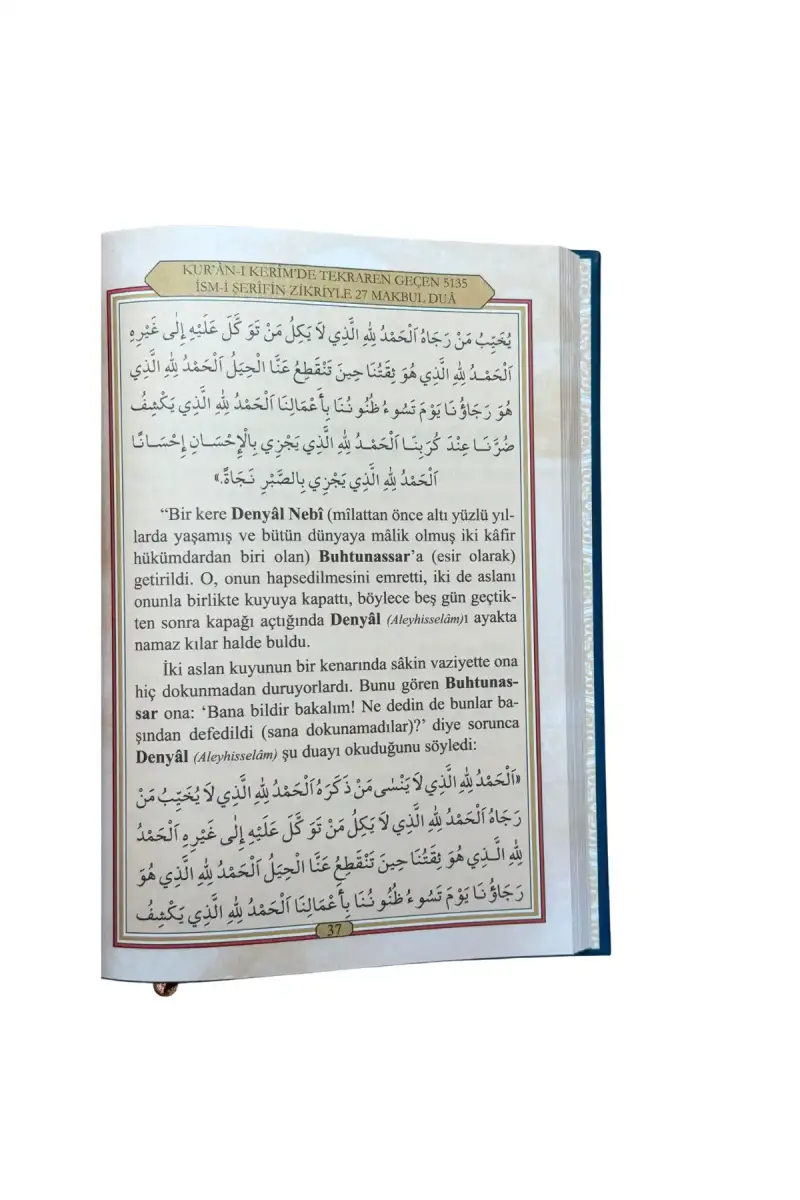 KUR'ÂN-I KERÎM'DE TEKRAREN GEÇEN 5135
İSM-İ ŞERÎFİN ZİKRİYLE 27 MAKBUL DUÂ
يُخَيِّبُ مَنْ رَجَاهُ اَلْحَمْدُ لِلهِ الَّذِي لَا يَكِلُ مَنْ تَوَكَّلَ عَلَيْهِ إِلٰى غَيْرِهِ
اَلْحَمْدُ لِلهِ الَّذِي هُوَ ثِقَتُنَا حِينَ تَنْقَطِعُ عَنَّا الْحِيَلُ اَلْحَمْدُ لِلهِ الَّذِي
هُوَ رَجَاؤُنَا يَوْمَ تَسُوءُ ظُنُونُنَا بِأَعْمَالِنَا اَلْحَمْدُ لِلهِ الَّذِي يَكْشِفُ
ضُرَّنَا عِنْدَ كُرَبِنَا اَلْحَمْدُ لِلهِ الَّذِي يَجْزِي بِالْإِحْسَانِ إِحْسَانًا
اَلْحَمْدُ لِلهِ الَّذِي يَجْزِي بِالصَّبْرِ نَجَاةً.»
“Bir kere Denyâl Nebî (mîlattan önce altı yüzlü yıl-
larda yaşamış ve bütün dünyaya mâlik olmuş iki kâfir
hükümdardan biri olan) Buhtunassar’a (esir olarak)
getirildi. O, onun hapsedilmesini emretti, iki de aslanı
onunla birlikte kuyuya kapattı, böylece beş gün geçtik-
ten sonra kapağı açtığında Denyâl (Aleyhisselâm)ı ayakta
namaz kılar halde buldu.
İki aslan kuyunun bir kenarında sâkin vaziyette ona
hiç dokunmadan duruyorlardı. Bunu gören Buhtunas-
sar ona: ‘Bana bildir bakalım! Ne dedin de bunlar ba-
şından defedildi (sana dokunamadılar)?’ diye sorunca
Denyâl (Aleyhisselâm) şu duayı okuduğunu söyledi:
«اَلْحَمْدُ لِلهِ الَّذِي لَا يَنْسٰى مَنْ ذَكَرَهُ اَلْحَمْدُ لِلهِ الَّذِي لَا يُخَيِّبُ مَنْ
رَجَاهُ اَلْحَمْدُ لِلهِ الَّذِي لَا يَكِلُ مَنْ تَوَكَّلَ عَلَيْهِ إِلٰى غَيْرِهِ اَلْحَمْدُ
لِلهِ الَّذِي هُوَ ثِقَتُنَا حِينَ تَنْقَطِعُ عَنَّا الْحِيَلُ اَلْحَمْدُ لِلهِ الَّذِي هُوَ
رَجَاؤُنَا يَوْمَ تَسُوءُ ظُنُونُنَا بِأَعْمَالِنَا اَلْحَمْدُ لِلهِ الَّذِي يَكْشِفُ
37